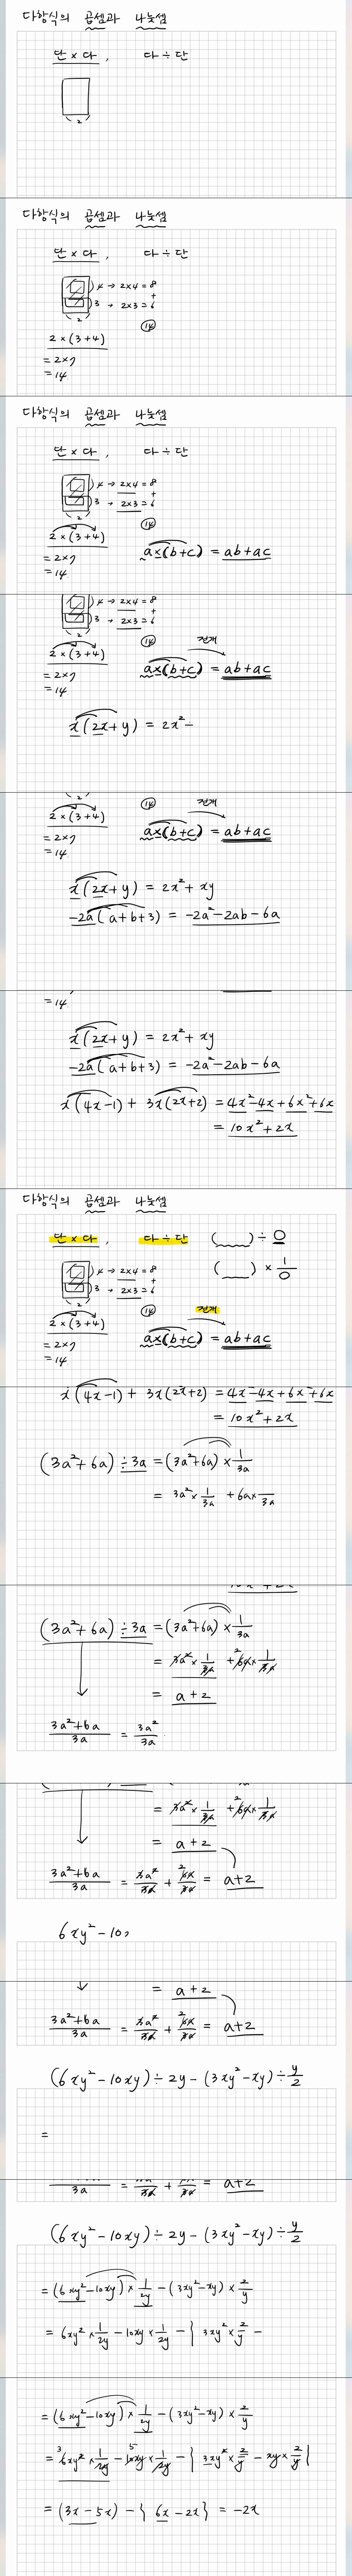 다항식의 곱셈과 나눗셈
단 × 다, 다 ÷ 단
2
다항식의 곱셈과 나눗셈
단 × 다, 다 ÷ 단
4 → 2×4 = 8
+
3 → 2×3 = 6
2
14
2×(3+4)
= 2×7
= 14
다항식의 곱셈과 나눗셈
단 × 다, 다 ÷ 단
4 → 2×4 = 8
+
3 → 2×3 = 6
2
14
2×(3+4)
= 2×7
= 14
a×(b+c) = ab+ac
4 → 2×4 = 8
+
3 → 2×3 = 6
2
14 전개
2×(3+4)
= 2×7
= 14
a×(b+c) = ab+ac
x(2x+y) = 2x²-
2
14 전개
2×(3+4)
= 2×7
= 14
a×(b+c) = ab+ac
x(2x+y) = 2x²+xy
-2a(a+b+3) = -2a²-2ab-6a
= 14
x(2x+y) = 2x²+xy
-2a(a+b+3) = -2a²-2ab-6a
x(4x-1) + 3x(2x+2) = 4x²-4x+6x²+6x
= 10x²+2x
다항식의 곱셈과 나눗셈
단 × 다, 다 ÷ 단 ( ) ÷ O
4 → 2×4 = 8 ( ) × 1/O
+
3 → 2×3 = 6
2
14 전개
2×(3+4)
= 2×7
= 14
a×(b+c) = ab+ac
x(4x-1) + 3x(2x+2) = 4x²-4x+6x²+6x
= 10x²+2x
(3a²+6a) ÷ 3a = (3a²+6a) × 1/3a
= 3a² × 1/3a + 6a × /3a
10x²+2x
(3a²+6a) ÷ 3a = (3a²+6a) × 1/3a
= 3a² × 1/3a + 2 6a × 1/3a
= a+2
3a²+6a/3a = 3a²/3a
= 3a² × 1/3a + 2 6a × 1/3a
= a+2
3a²+6a/3a = 3a²/3a + 2 6a/3a = a+2
6xy²-10
= a+2
3a²+6a/3a = 3a²/3a + 2 6a/3a = a+2
(6xy²-10xy) ÷ 2y - (3xy²-xy) ÷ y/2
=
3a = 3a + 3a = a+2
(6xy²-10xy) ÷ 2y - (3xy²-xy) ÷ y/2
= (6xy²-10xy) × 1/2y - (3xy²-xy) × 2/y
= 6xy² × 1/2y - 10xy × 1/2y - { 3xy² × 2/y -
= (6xy²-10xy) × 1/2y - (3xy²-xy) × 2/y
= 3 6xy² × 1/2y - 5 10xy × 1/2y - { 3xy² × 2/y - xy × 2/y }
= (3x-5x) - { 6x-2x } = -2x